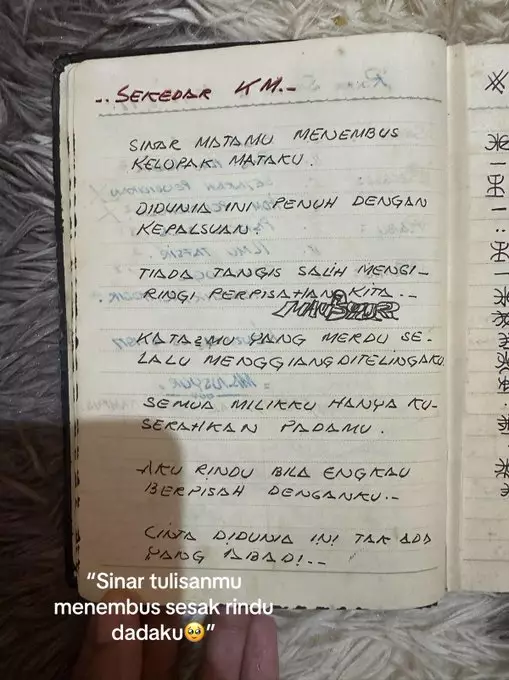 .. SEKEDAR KM. -
SINAR MATAMU MENEMBUS
KELOPAK MATAKU
DIDUNIA INI PENUH DENGAN
KEPALSUAN.
TIADA TANGIS SALIH MENGI-
RINGI PERPISAHAN KITA. -
KATA2MU YANG MERDU SE-
LALU MENGGIANG DITELINGAKU
SEMUA MILIKKU HANYA KU-
SERAHKAN PADAMU.
AKU RINDU BILA ENGKAU
BERPISAH DENGANKU. -
CINTA DIDUNIA INI TAK ADA
YANG ABADI. --
"Sinar tulisanmu
menembus sesak rindu
dadaku🥺"